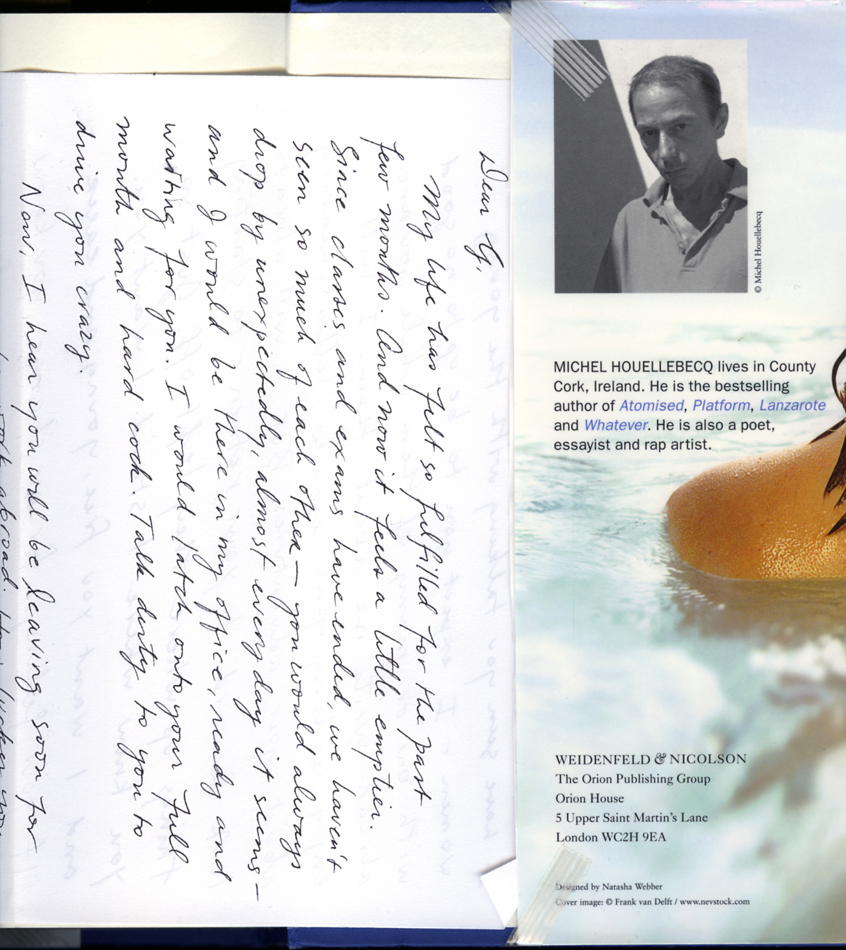 Dear G,
My life has felt so fulfilled for the past
few months. And now it feels a little emptier.
Since classes and exams have ended, we haven't
seen so much of each other — you would always
drop by unexpectedly, almost every day it seems —
and I would be there in my office, ready and
waiting for you. I would latch onto your full
mouth and hard cock. Talk dirty to you to
drive you crazy.
Now, I hear you will be leaving soon for
work abroad.
© Michel Houellebecq
MICHEL HOUELLEBECQ lives in County
Cork, Ireland. He is the bestselling
author of Atomised, Platform, Lanzarote
and Whatever. He is also a poet,
essayist and rap artist.
WEIDENFELD & NICOLSON
The Orion Publishing Group
Orion House
5 Upper Saint Martin's Lane
London WC2H 9EA
Designed by Natasha Webber
Cover image: © Frank van Delft / www.nevstock.com